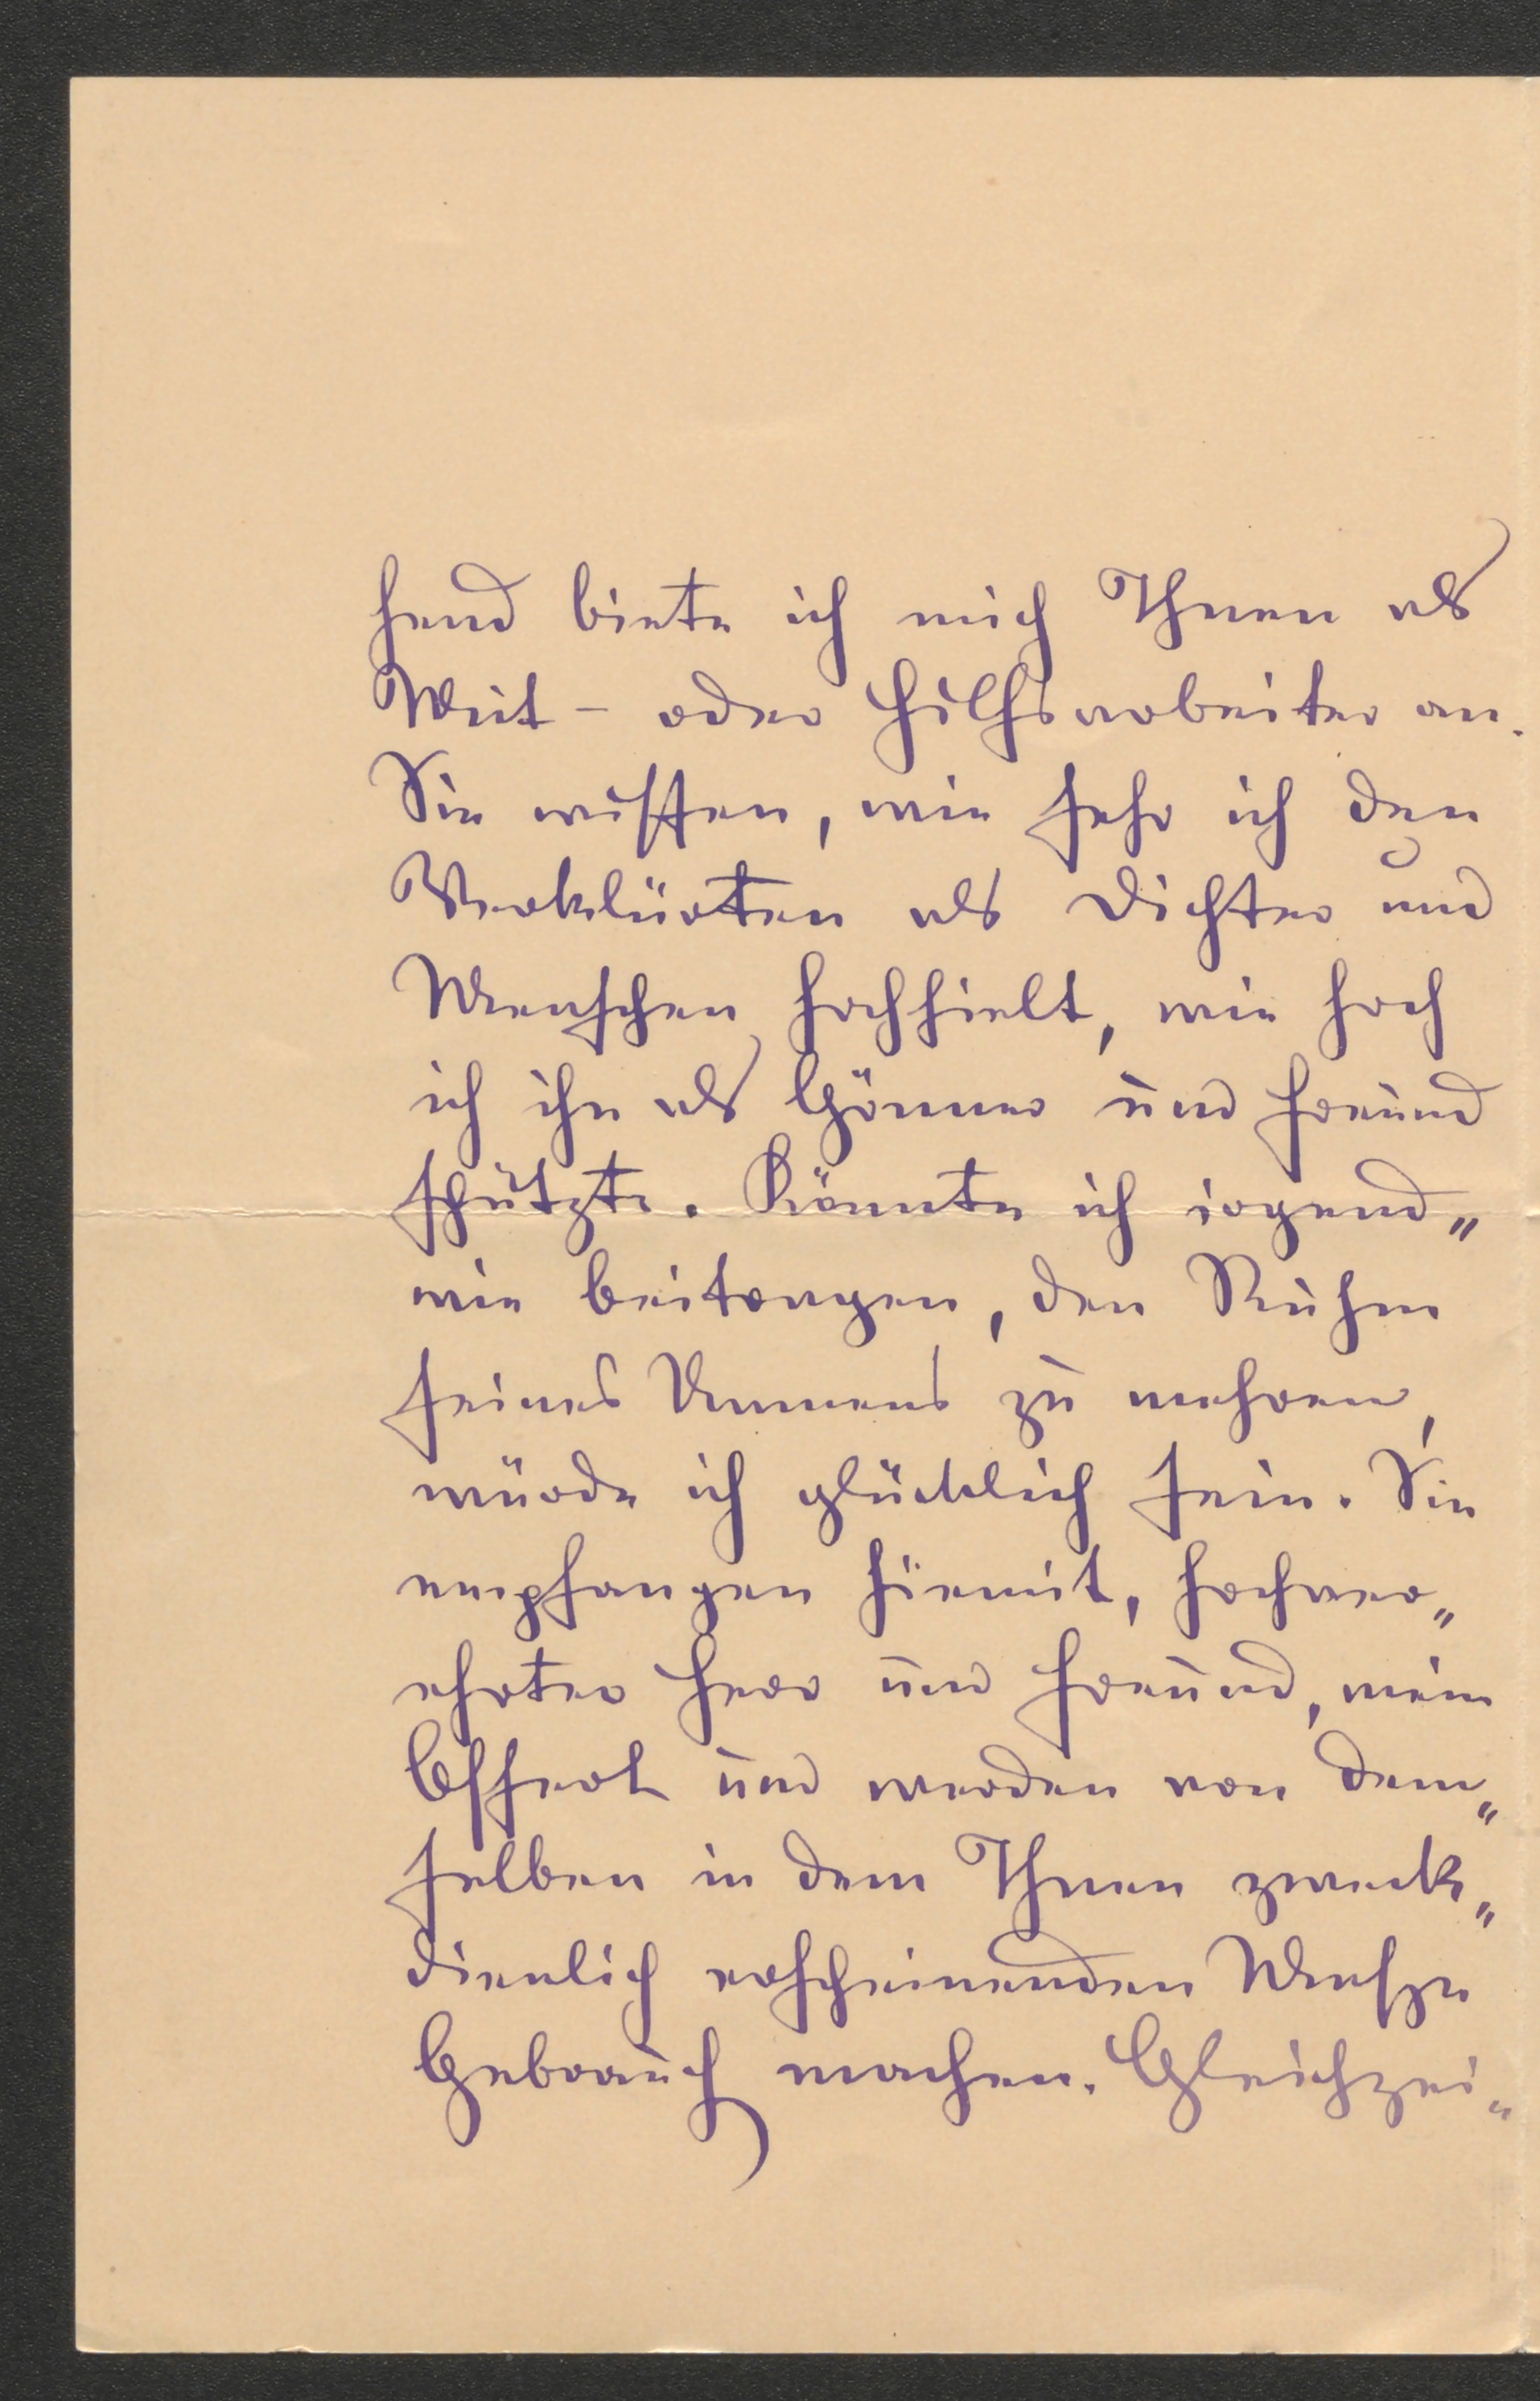 hend biete ich mich Ihnen als
Mit- oder Hilfsarbeiter an.
Sie wissen, wie sehr ich den
Verklärten als Dichter und
Menschen hochhielt, wie hoch
ich ihn als Gönner und Freund
schätzte. Könnte ich irgend„
wie beitragen, den Ruhm
seines Namens zu mehren,
würde ich glücklich sein. Sie
empfangen hiemit, hochver„
ehrter Herr und Freund, mein
Offert und werden von dem„
selben in dem Ihnen zweck„
dienlich erscheinenden Masze
Gebrauch machen. Gleichzei„